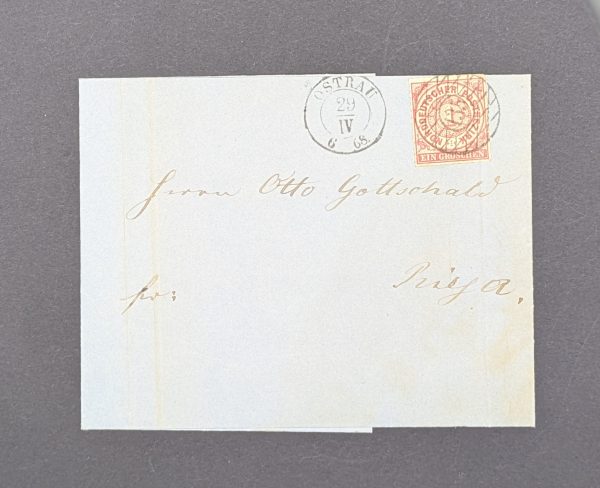 OSTRAU
29
IV
6 68.
NORDDEUTSCHER POSTBEZIRK
1
EIN GROSCHEN
Herrn Otto Gottschald
fr:
Riesa.